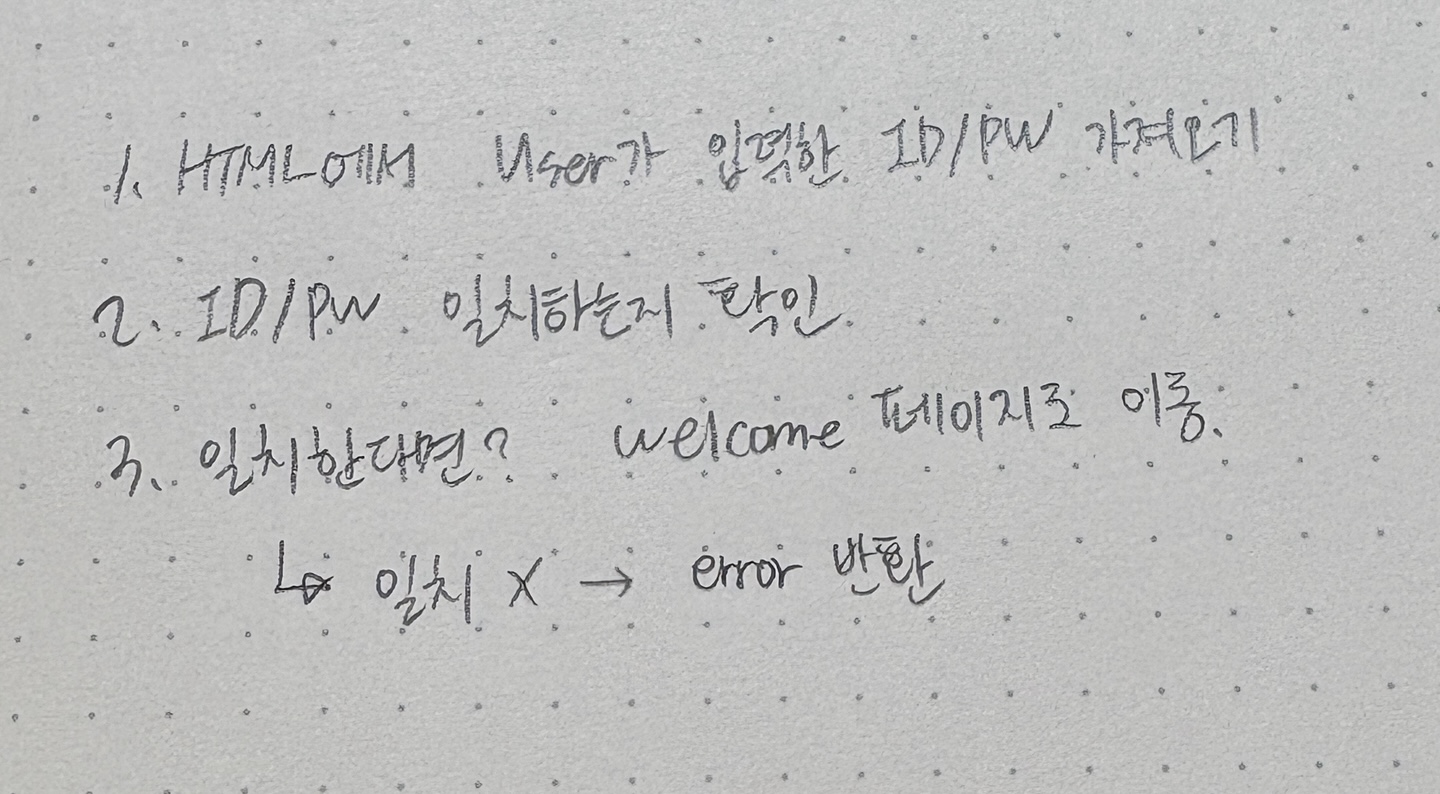 1. HTML에서 User가 입력한 ID/PW 가져오기
2. ID/PW 일치하는지 확인
3. 일치한다면? welcome 페이지로 이동.
↳ 일치 X → error 반환